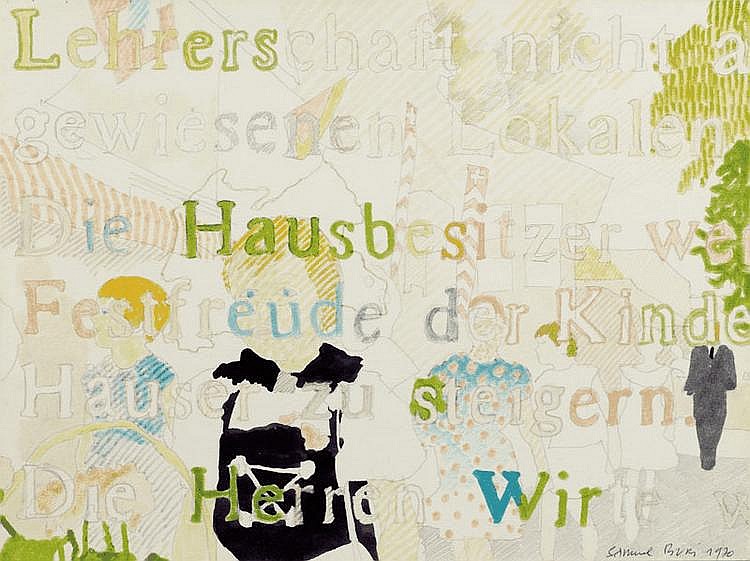 Lehrerschaft nicht a
gewiesenen Lokalen
Die Hausbesitzer wer
Festfreüde der Kinde
Häuser zu steigern.
Die Herren Wirte w
Samuel Buri 1970